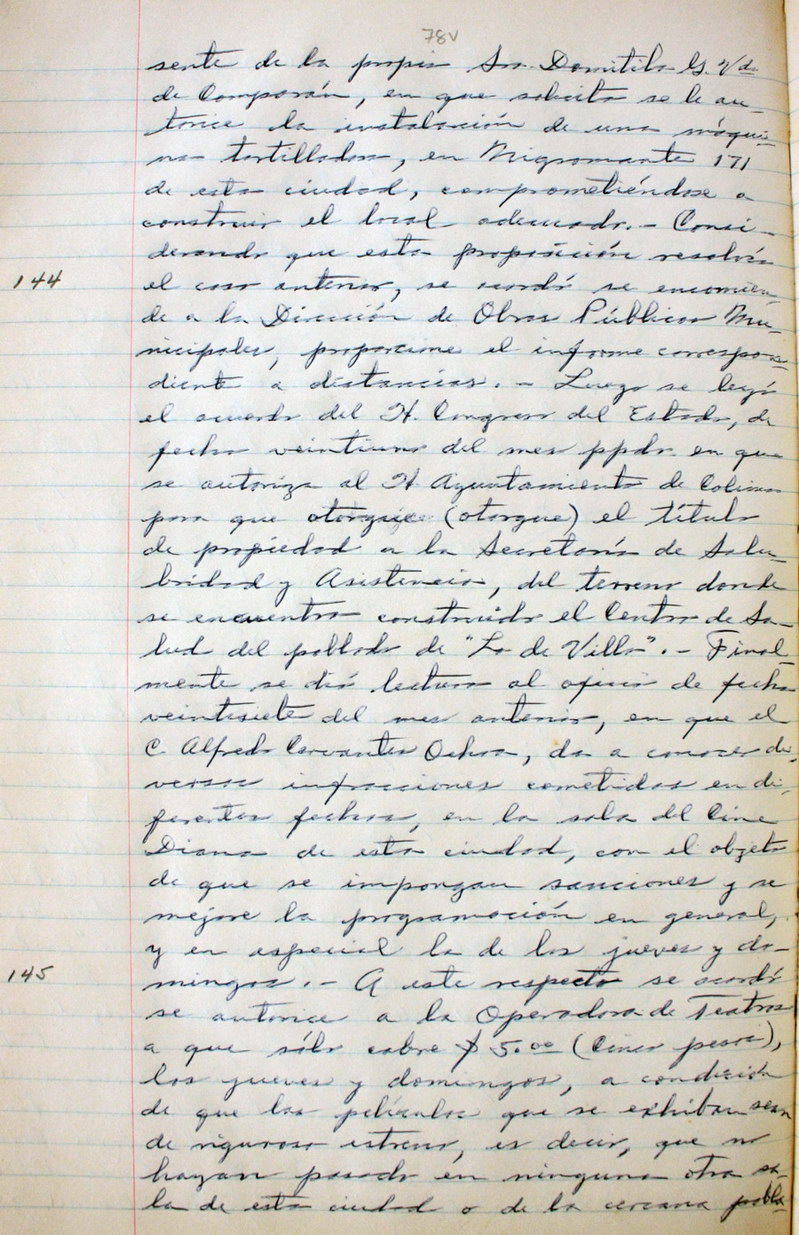 78v
sente de la propia Sra. Domitila G. Vda.
de Comparán, en que solicita se le au-
torice la instalación de una máqui-
na tortilladora, en Nigromante 171
de esta ciudad, comprometiéndose a
construir el local adecuado.- Consi-
derando que esta proposición resolvía
144
el caso anterior, se acordó se encomien-
de a la Dirección de Obras Públicas Mu-
nicipales, proporcione el informe correspon-
diente a distancias.- Luego se leyó
el acuerdo del H. Congreso del Estado, de
fecha veintiuno del mes ppdo. en que
se autoriza al H. Ayuntamiento de Colima
para que (otorgue) el título
de propiedad a la Secretaría de Salu-
bridad y Asistencia, del terreno donde
se encuentra construido el Centro de Sa-
lud del poblado de "Lo de Villa".- Final-
mente se dió lectura al oficio de fecha
veintisiete del mes anterior, en que el
C. Alfredo Cervantes Ochoa, da a conocer di-
versas infracciones cometidas en di-
ferentes fechas, en la sala del Cine
Diana de esta ciudad, con el objeto
de que se impongan sanciones y se
mejore la programación en general,
y en especial la de los jueves y do-
145
mingos.- A este respecto se acordó
se autorice a la Operadora de Teatros
a que sólo cobre $ 5.00 (Cinco pesos),
los jueves y domingos, a condición
de que las películas que se exhiban sean
de riguroso estreno, es decir, que no
hayan pasado en ninguna otra sa-
la de esta ciudad o de la cercana pobla-